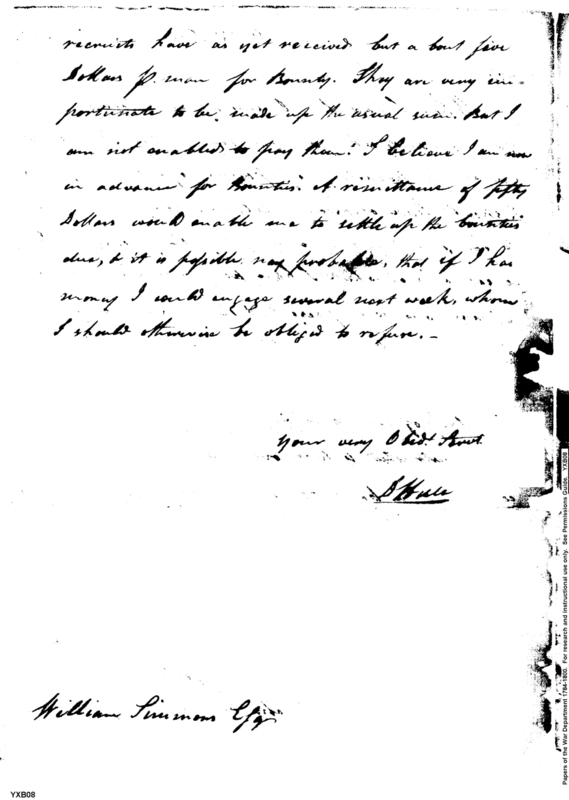 recruits have as yet received but a bout five
Dollars pr. man for Bounty. They are very im-
portunate to be made up the usual sum. But I
am not enabled to pay them. I believe I am now
in advance for Bounties. A remittance of fifty
Dollars would enable me to settle up the bounties
due, & it is possible nay probable, that if I had
money I could engage several next week, whom
I should otherwise be obliged to refuse.–
your very Obedt. Servt.
William Simmons Esqr
YXB08
Papers of the War Department 1784-1800. For research and instructional use only. See Permissions Guide. YXB08